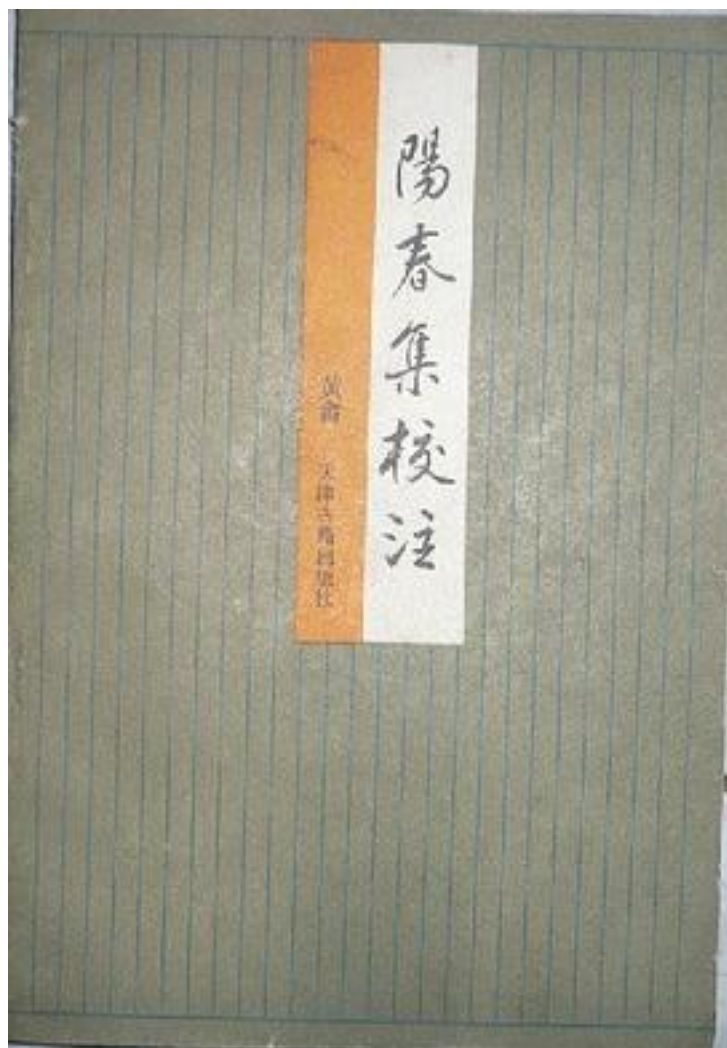 陽春集校注
黄畬 天津古籍出版社